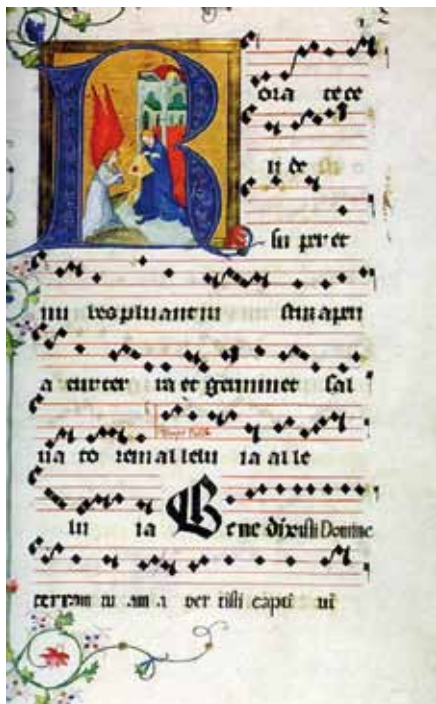 R ora te ce
li de su
su per et
nu bes pluant iu stum aperi
a tur ter ra et germinet sal
ua to rem allelu ia alle
lu ia Bene dixisti Domine
terram tu am a ver tisti capti ui